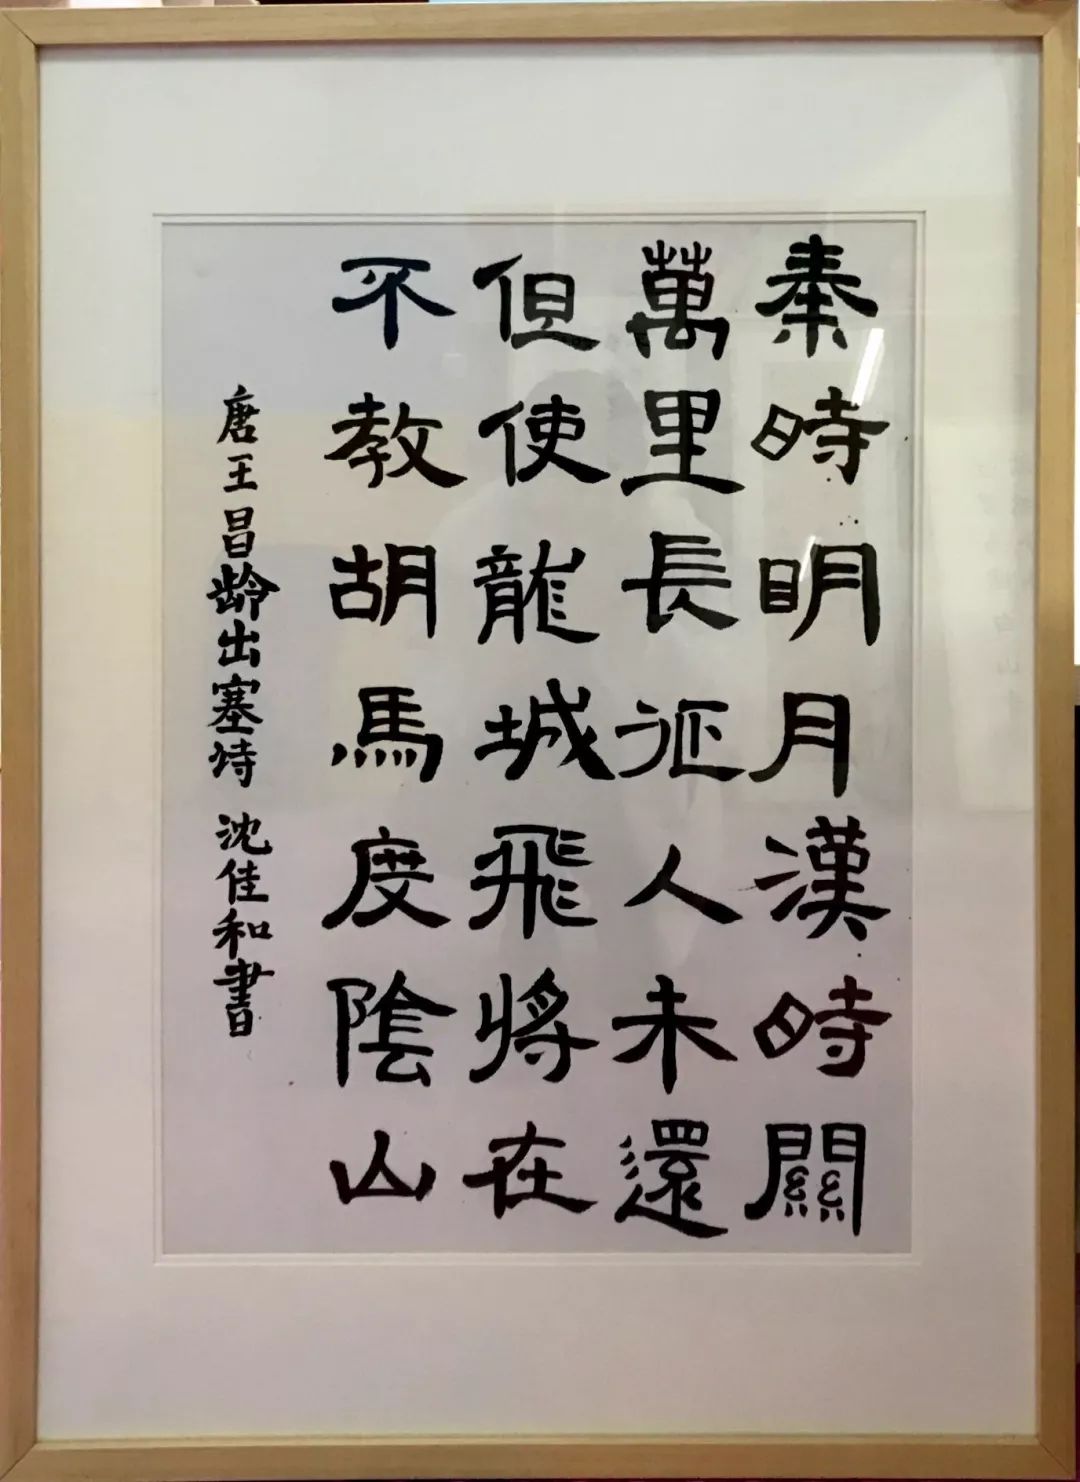 秦時明月漢時關
萬里長征人未還
但使龍城飛將在
不教胡馬度陰山
唐王昌龄出塞诗 沈佳和書